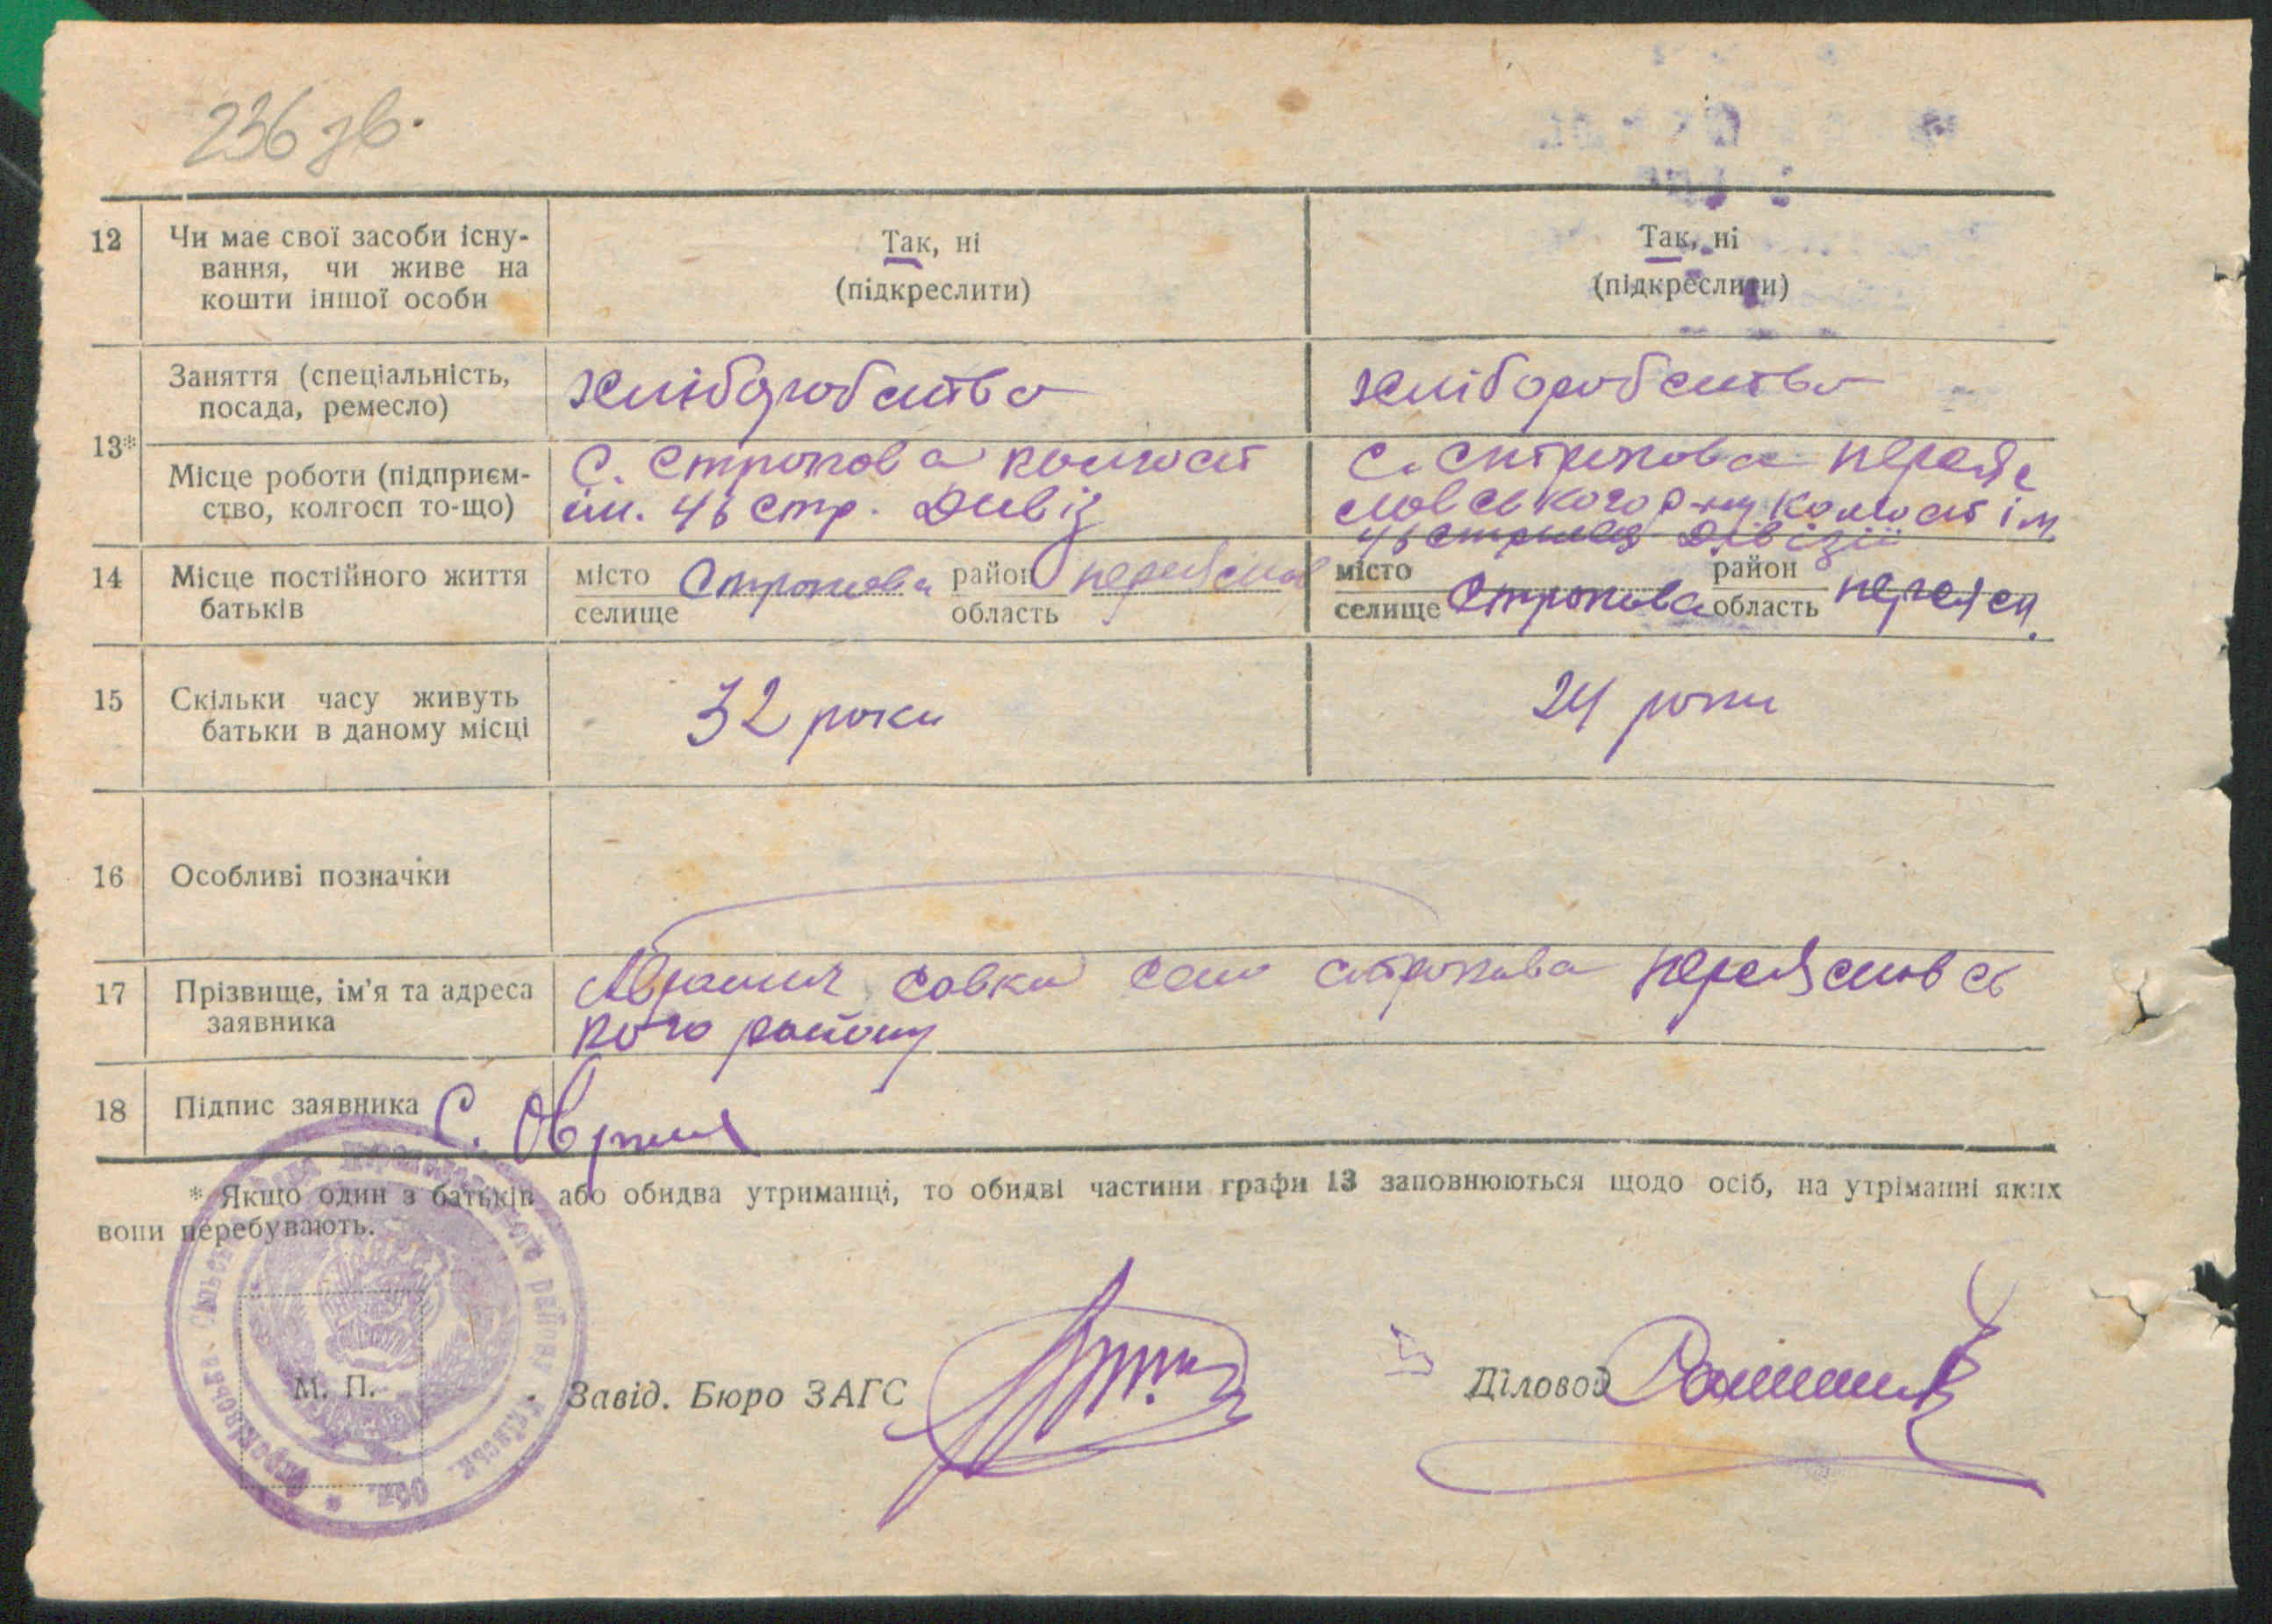 236 зв.
12 Чи має свої засоби існу- Так, ні Так, ні
вання, чи живе на (підкреслити) (підкреслити)
кошти іншої особи
Заняття (спеціальність, хліборобство хліборобство
посада, ремесло)
13*
Місце роботи (підприєм- С. Строкова колгосп С. Строкова переяс
ство, колгосп то-що) ім. 46 стр. Дивіз ловського р-ну колгосп ім
46 стрілец Дівізії
14 Місце постійного життя місто Строкова район переяслов місто Строкова район переясл.
батьків селище область селище область
15 Скільки часу живуть 32 роки 24 роки
батьки в даному місці
16 Особливі позначки
17 Прізвище, ім'я та адреса Савки село строкова переясловсь
заявника кого району
18 Підпис заявника С.
* Якщо один з батьків або обидва утриманці, то обидві частини графи 13 заповнюються щодо осіб, на утріманні яких
вони перебувають.
району Київськ. Обл.
М. П. Завід. Бюро ЗАГС Діловод